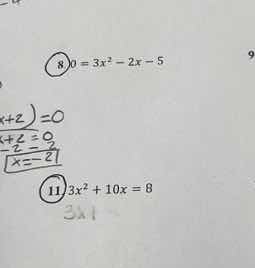 8. 0 = 3x² − 2x − 5
9
x+2) = 0
x+2 = 0
-2 -2
x = -2
11. 3x² + 10x = 8
3x1